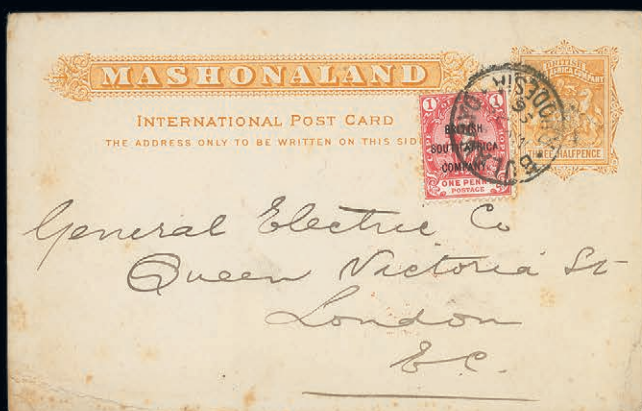 MASHONALAND
INTERNATIONAL POST CARD
THE ADDRESS ONLY TO BE WRITTEN ON THIS SIDE
BRITISH
COMPANY
HALFPENCE
1 1
BRITISH
SOUTH AFRICA
COMPANY
ONE PENNY
POSTAGE
General Electric Co
Queen Victoria St
London
E.C.